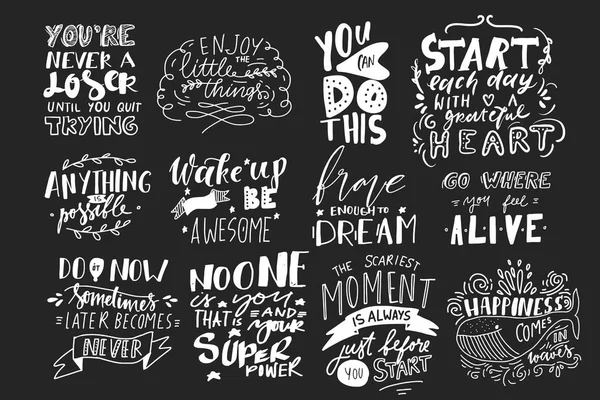 YOU'RE
NEVER A
LOSER
UNTIL YOU QUIT
TRYING
ENJOY
THE
little
things
YOU
CAN
DO
THIS
START
each day
WITH A
grateful
HEART
ANYTHING
IS
possible
Wake up
BE
AWESOME
brave
ENOUGH TO
DREAM
GO WHERE
you feel
ALIVE
DO IT NOW
Sometimes
LATER BECOMES
NEVER
NO ONE
is you
THAT IS AND
your
SUPER
POWER
THE SCARIEST
MOMENT
IS ALWAYS
just before
YOU START
HAPPINESS
COMES
IN
waves